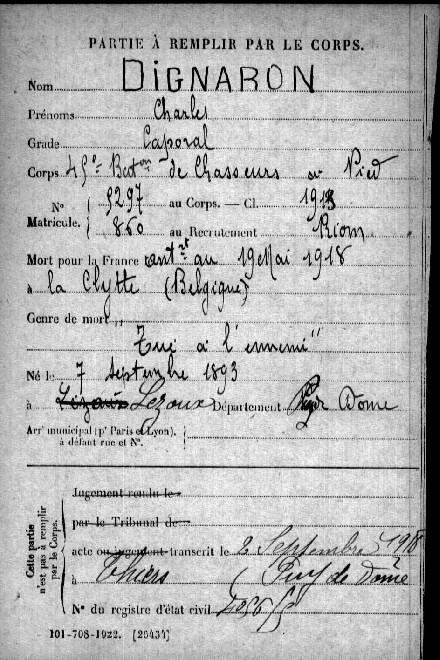 PARTIE À REMPLIR PAR LE CORPS.
Nom DIGNARON
Prénoms Charles
Grade Caporal
Corps 45e Baton de Chasseurs à Pied
N° 5297 au Corps. — Cl. 1913
Matricule. 860 au Recrutement Riom
Mort pour la France antrt au 19 Mai 1918
à la Clytte (Belgique)
Genre de mort
Tué à l'ennemi"
Né le 7 Septembre 1893
à Lezoux Département Puy de Dome
Arrt municipal (pr Paris et Lyon),
à défaut rue et N°.
Cette partie
n'est pas à remplir
par le Corps.
Jugement rendu le
par le Tribunal de
acte ou jugement transcrit le 2 Septembre 1918
à Thiers (Puy de Dôme
N° du registre d'état civil
101-708-1922. [25434]